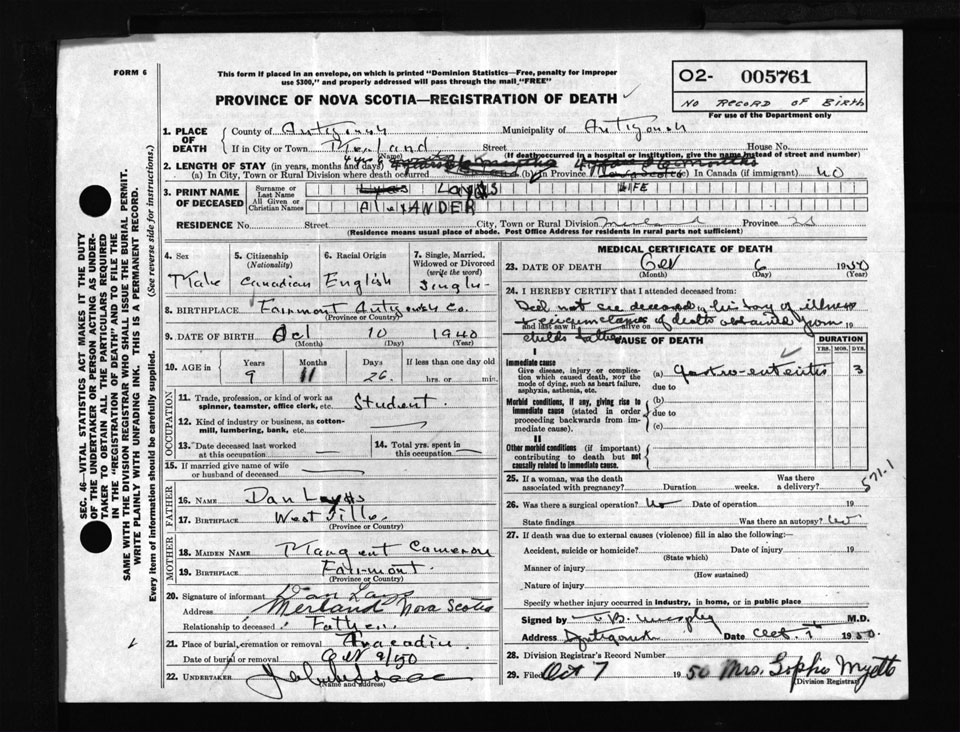 FORM 6
This form if placed in an envelope, on which is printed "Dominion Statistics—Free, penalty for improper
use $300," and properly addressed will pass through the mail "FREE"
O2- 005761
NO RECORD OF BIRTH
For use of the Department only
PROVINCE OF NOVA SCOTIA—REGISTRATION OF DEATH
1. PLACE OF DEATH
County of Antigonish Municipality of Antigonish
If in City or Town Merland Street House No.
(Name) (If death occurred in a hospital or institution, give the name instead of street and number)
2. LENGTH OF STAY (in years, months and days)
(a) In City, Town or Rural Division where death occurred (b) in Province Nova Scotia (c) in Canada (if immigrant) no
3. PRINT NAME OF DECEASED
Surname or Last Name
All Given or Christian Names AlexANDER
RESIDENCE No. Street City, Town or Rural Division Merland Province NS
(Residence means usual place of abode. Post Office Address for residents in rural parts not sufficient)
4. Sex Male
5. Citizenship (Nationality) Canadian
6. Racial Origin English
7. Single, Married, Widowed or Divorced (write the word) Single
8. BIRTHPLACE Fairmont Antigonish Co.
(Province or Country)
9. DATE OF BIRTH Oct 10 1940
(Month) (Day) (Year)
10. AGE in Years 9 Months 11 Days 26 If less than one day old hrs. or min.
OCCUPATION
11. Trade, profession, or kind of work as spinner, teamster, office clerk, etc. Student
12. Kind of industry or business, as cotton-mill, lumbering, bank, etc.
13. Date deceased last worked at this occupation
14. Total yrs. spent in this occupation
15. If married give name of wife or husband of deceased
FATHER
16. NAME Dan
17. BIRTHPLACE Westville
(Province or Country)
MOTHER
18. MAIDEN NAME Margaret Cameron
19. BIRTHPLACE Fairmont
(Province or Country)
20. Signature of informant Dan
Address Merland Nova Scotia
Relationship to deceased Father
21. Place of burial, cremation or removal
Date of burial or removal Oct 9/50
22. UNDERTAKER
(Name and address)
MEDICAL CERTIFICATE OF DEATH
23. DATE OF DEATH Oct 6 1950
(Month) (Day) (Year)
24. I HEREBY CERTIFY that I attended deceased from:
Did not see deceased, history of illness
& circumstances of death obtained from
and last saw alive on 19
childs father
CAUSE OF DEATH
DURATION
YRS. MOS. DYS.
I
Immediate cause
Give disease, injury or complication which caused death, NOT the mode of dying, such as heart failure, asphyxia, asthenia, etc.
(a) gastro-enteritis 3
due to
Morbid conditions, if any, giving rise to immediate cause (stated in order proceeding backwards from immediate cause).
(b)
due to
(c)
II
Other morbid conditions (if important) contributing to death but not causally related to immediate cause.
571.1
25. If a woman, was the death associated with pregnancy? Duration weeks. Was there a delivery?
26. Was there a surgical operation? no Date of operation 19
State findings Was there an autopsy? no
27. If death was due to external causes (violence) fill in also the following:—
Accident, suicide or homicide? Date of injury 19
(State which)
Manner of injury
(How sustained)
Nature of injury
Specify whether injury occurred in industry, in home, or in public place
Signed by Murphy M.D.
Address Antigonish Date Oct. 7 1950.
28. Division Registrar's Record Number
29. Filed Oct 7 1950 Mrs. Sophie Myette
(Division Registrar)
SEC. 46—VITAL STATISTICS ACT MAKES IT THE DUTY
OF THE UNDERTAKER OR PERSON ACTING AS UNDER-
TAKER TO OBTAIN ALL THE PARTICULARS REQUIRED
IN THE "REGISTRATION OF DEATH" AND TO FILE THE
SAME WITH THE DIVISION REGISTRAR WHO SHALL ISSUE THE BURIAL PERMIT.
WRITE PLAINLY WITH UNFADING INK. THIS IS A PERMANENT RECORD.
Every item of information should be carefully supplied. (See reverse side for instructions.)